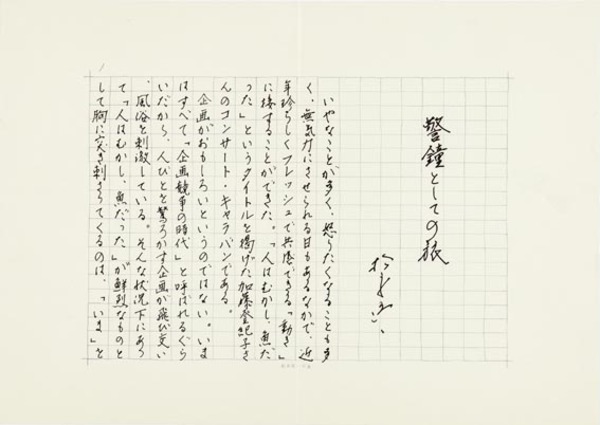 警鐘としての旅
いやなことが多く、怒りたくなることも多
く、無気力にさせられる日もあるなかで、近
年珍らしくフレッシュで共感できる「動き」
に接することができた。「人はむかし、魚だ
った」というタイトルを掲げた加藤登紀子さ
んのコンサート・キャラバンである。
企画がおもしろいというのではない。いま
はすべて「企画競争の時代」と呼ばれるぐら
いだから、人びとを驚ろかす企画が飛び交い
、風俗を刺激している。そんな状況下にあっ
て「人はむかし、魚だった」が鮮烈なものと
して胸に突き刺さってくるのは、「いま」を